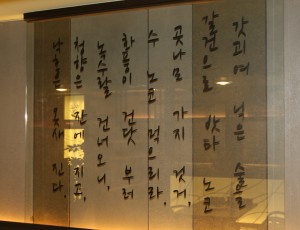 갓 괴여 닉은 술을
갈건으로 밧타 노코
곳나모 가지 것거,
수 노코 먹으리라,
화풍이 건듯 부러
녹수를 건너오니,
청향은 잔에 지고,
낙홍은 옷새 진다.